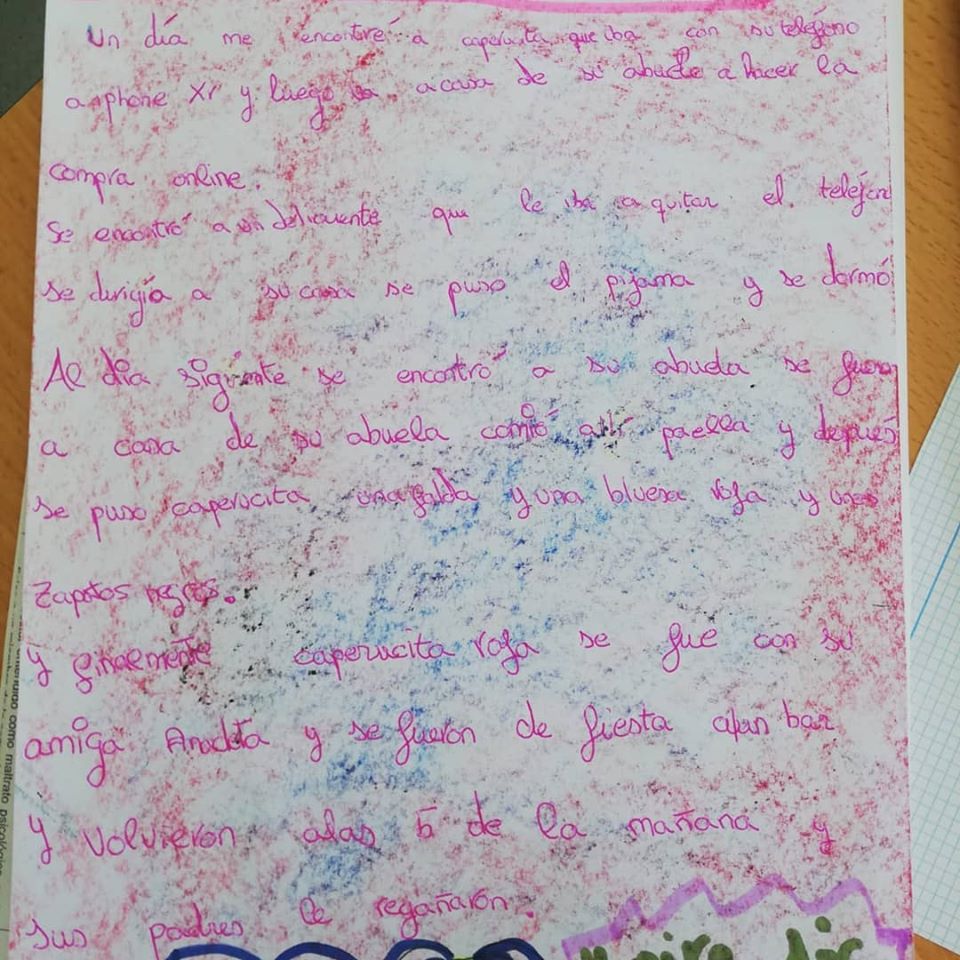 Un día me encontré a caperucita que iba con su teléfono
anphone Xr y luego a a casa de su abuela a hacer la
compra online.
Se encontró a un delicuente que le iba a quitar el teléfon
se dirigía a su casa se puso el pijama y se dormó
Al día siguiente se encontró a su abuela se fueron
a casa de su abuela comió allí paella y depués
se puso caperucita una falda y una bluesa roja y unos
Zapatos negros.
y finalmente caperucita roja se fue con su
amiga y se fuerón de fiesta aun bar
y volvieron alas 5 de la mañana y
sus padres le regañarón.